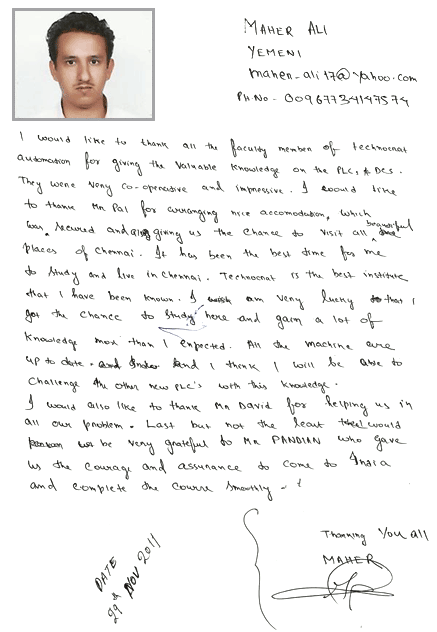 MAHER ALI
YEMENI
maher_ali17@yahoo.com
PH NO - 00967734147574
I would like to thank all the faculty member of technocrat
automation for giving the valuable knowledge on the PLC, & DCS.
They were very co-operative and impressive. I would like
to thank Mr Pal for arranging nice accomodation, which
was secured and also giving us the chance to visit all beautiful
places of Chennai. It has been the best time for me
to study and live in Chennai. Technocrat is the best institute
that I have been known. I am very lucky that I
got the chance to study here and gain a lot of
knowledge more than I expected. All the machine are
up to date. and I think I will be able to
challenge the other new PLC's with this knowledge.
I would also like to thank Mr David for helping us in
all our problem. Last but not the least I would
be very grateful to Mr PANDIAN who gave
us the courage and assurance to come to India
and complete the course smoothly -
Thanking You all
MAHER
DATE
29 NOV 2011